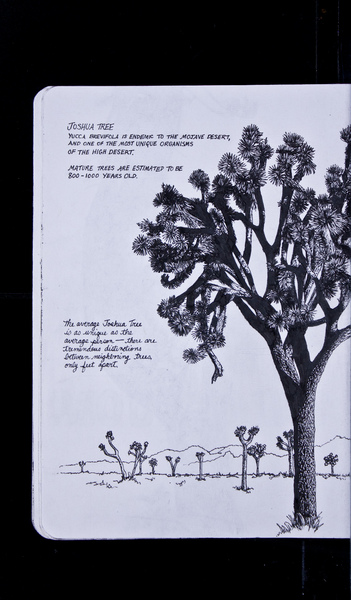 JOSHUA TREE
YUCCA BREVIFOLA IS ENDEMIC TO THE MOJAVE DESERT,
AND ONE OF THE MOST UNIQUE ORGANISMS
OF THE HIGH DESERT.
MATURE TREES ARE ESTIMATED TO BE
800-1000 YEARS OLD.
The average Joshua Tree
is as unique as the
average person — there are
tremendous distinctions
between neighboring trees
only feet apart.